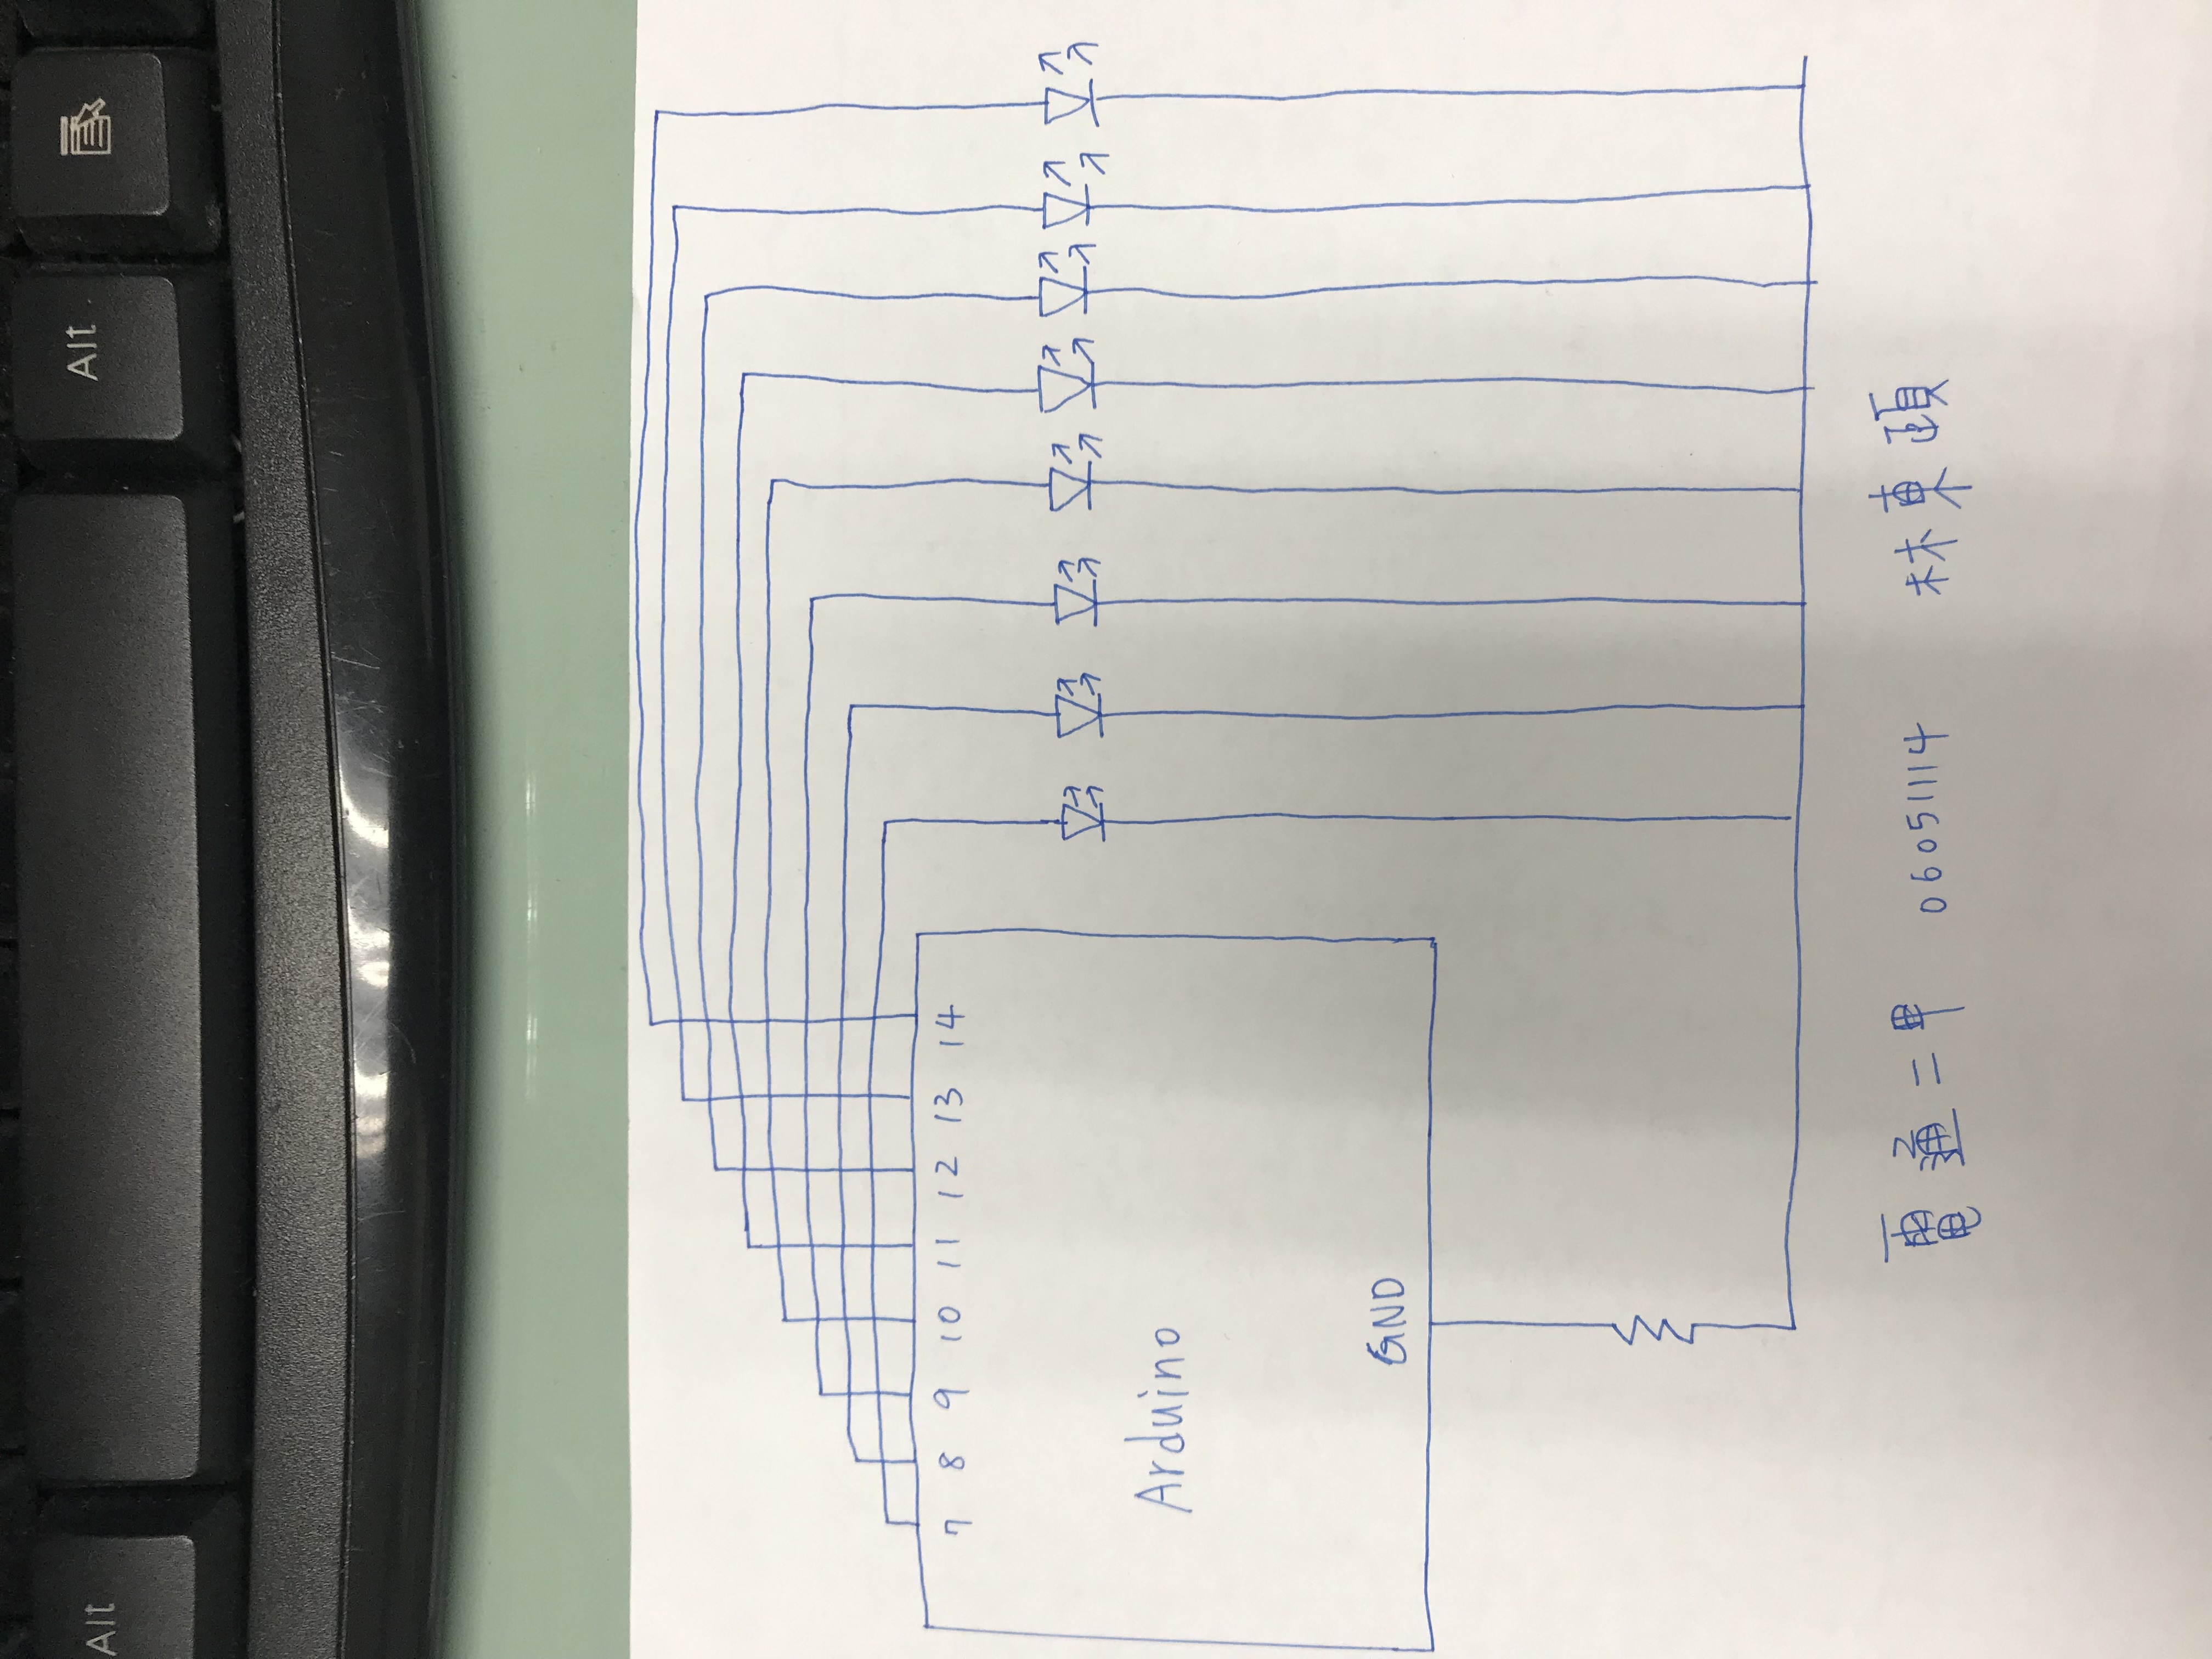 Alt Alt
7 8 9 10 11 12 13 14
Arduino
GND
電通二甲 06051114 林東頤